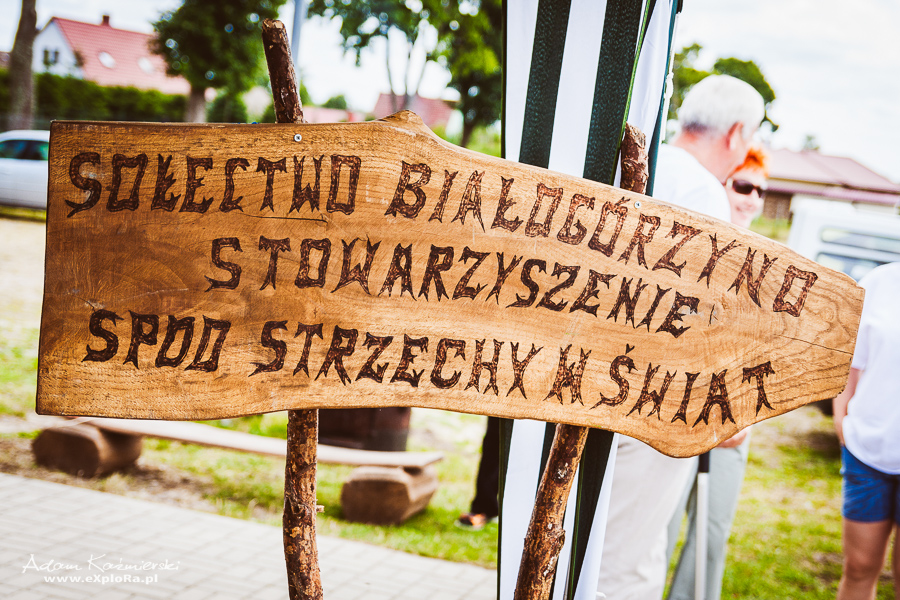 SOŁECTWO BIAŁOGÓRZYNO
STOWARZYSZENIE
SPOD STRZECHY W ŚWIAT
Adam Kaźmierski
www.eXploRa.pl